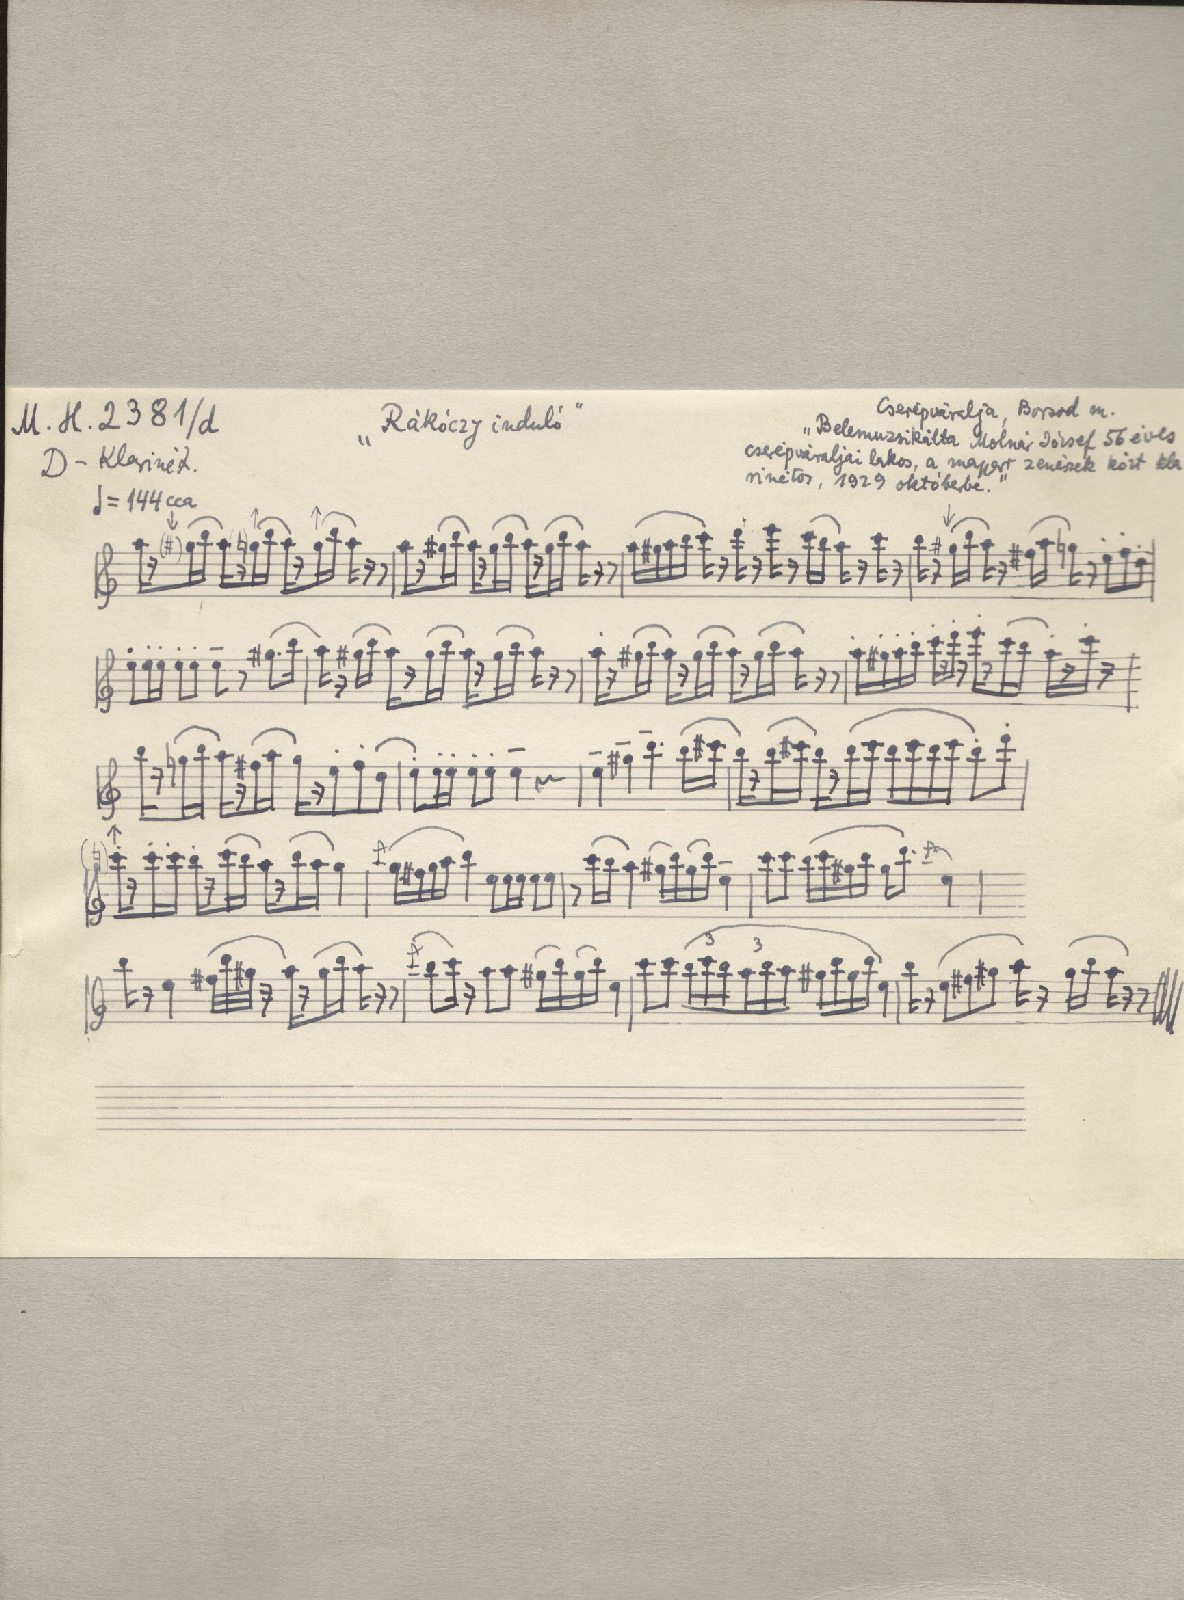 M. H. 2381/d
„Rákóczy induló"
Cserépváralja, Borsod m.
D - Klarinét.
„Belemuzsikálta Molnár József 56 éves
cserépváraljai lakos, a magart zenészek közt kla
rinétos, 1929 októberbe."
♩ = 144 cca
3 3